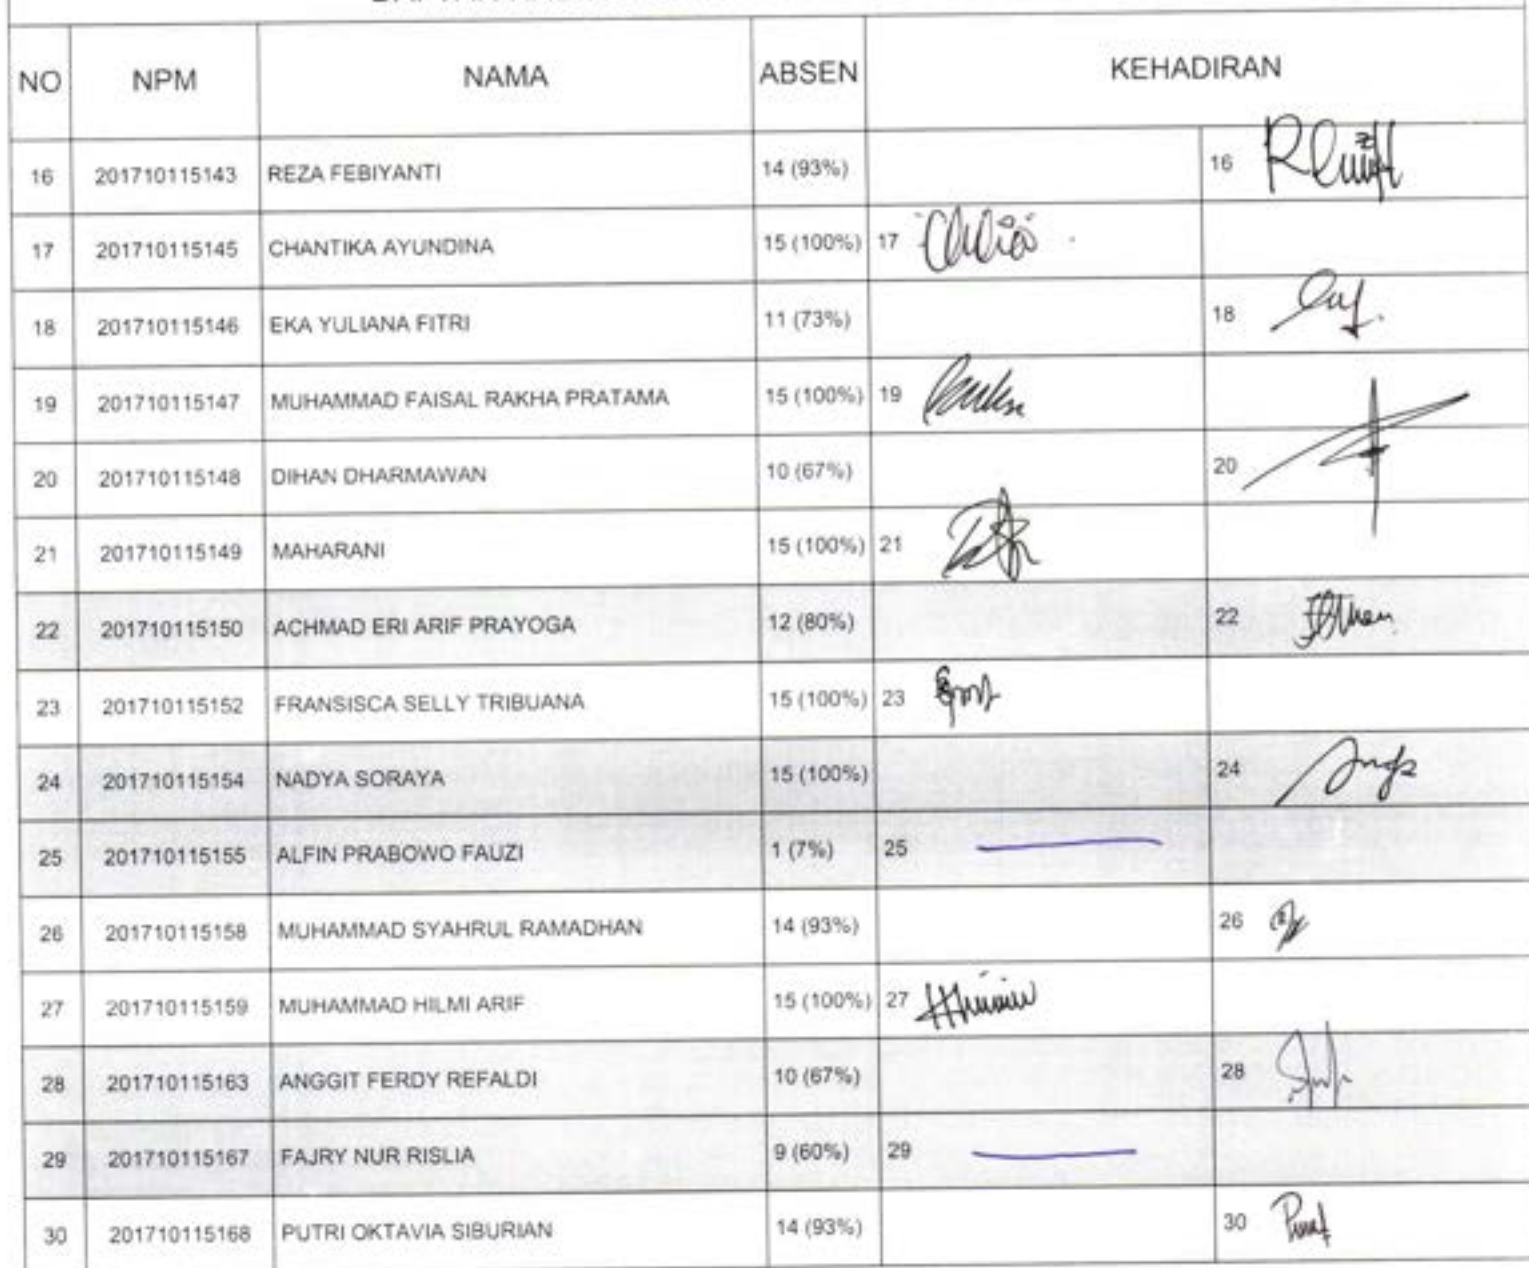 NO NPM NAMA ABSEN KEHADIRAN
16 201710115143 REZA FEBIYANTI 14 (93%) 16
17 201710115145 CHANTIKA AYUNDINA 15 (100%) 17
18 201710115146 EKA YULIANA FITRI 11 (73%) 18
19 201710115147 MUHAMMAD FAISAL RAKHA PRATAMA 15 (100%) 19
20 201710115148 DIHAN DHARMAWAN 10 (67%) 20
21 201710115149 MAHARANI 15 (100%) 21
22 201710115150 ACHMAD ERI ARIF PRAYOGA 12 (80%) 22
23 201710115152 FRANSISCA SELLY TRIBUANA 15 (100%) 23
24 201710115154 NADYA SORAYA 15 (100%) 24
25 201710115155 ALFIN PRABOWO FAUZI 1 (7%) 25
26 201710115158 MUHAMMAD SYAHRUL RAMADHAN 14 (93%) 26
27 201710115159 MUHAMMAD HILMI ARIF 15 (100%) 27
28 201710115163 ANGGIT FERDY REFALDI 10 (67%) 28
29 201710115167 FAJRY NUR RISLIA 9 (60%) 29
30 201710115168 PUTRI OKTAVIA SIBURIAN 14 (93%) 30